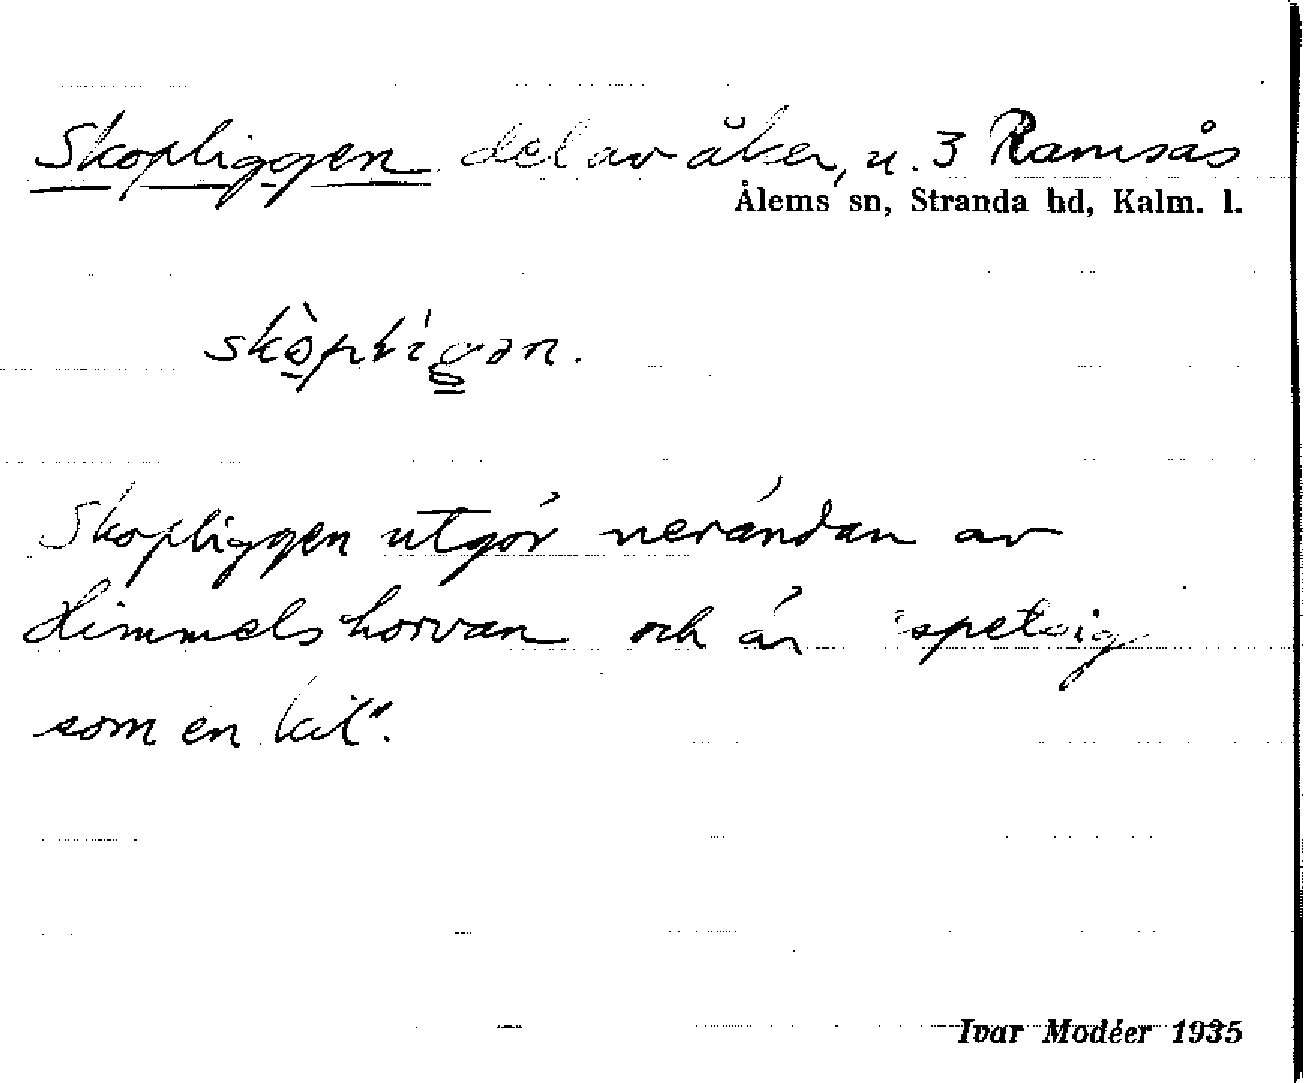 Skopliggen del av åker, u. 3 Ramsås
Ålems sn, Stranda hd, Kalm. l.
Skopliggen utgör nerändan av
Himmelshorvan och är "spetsig
som en kil".
Ivar Modéer 1935